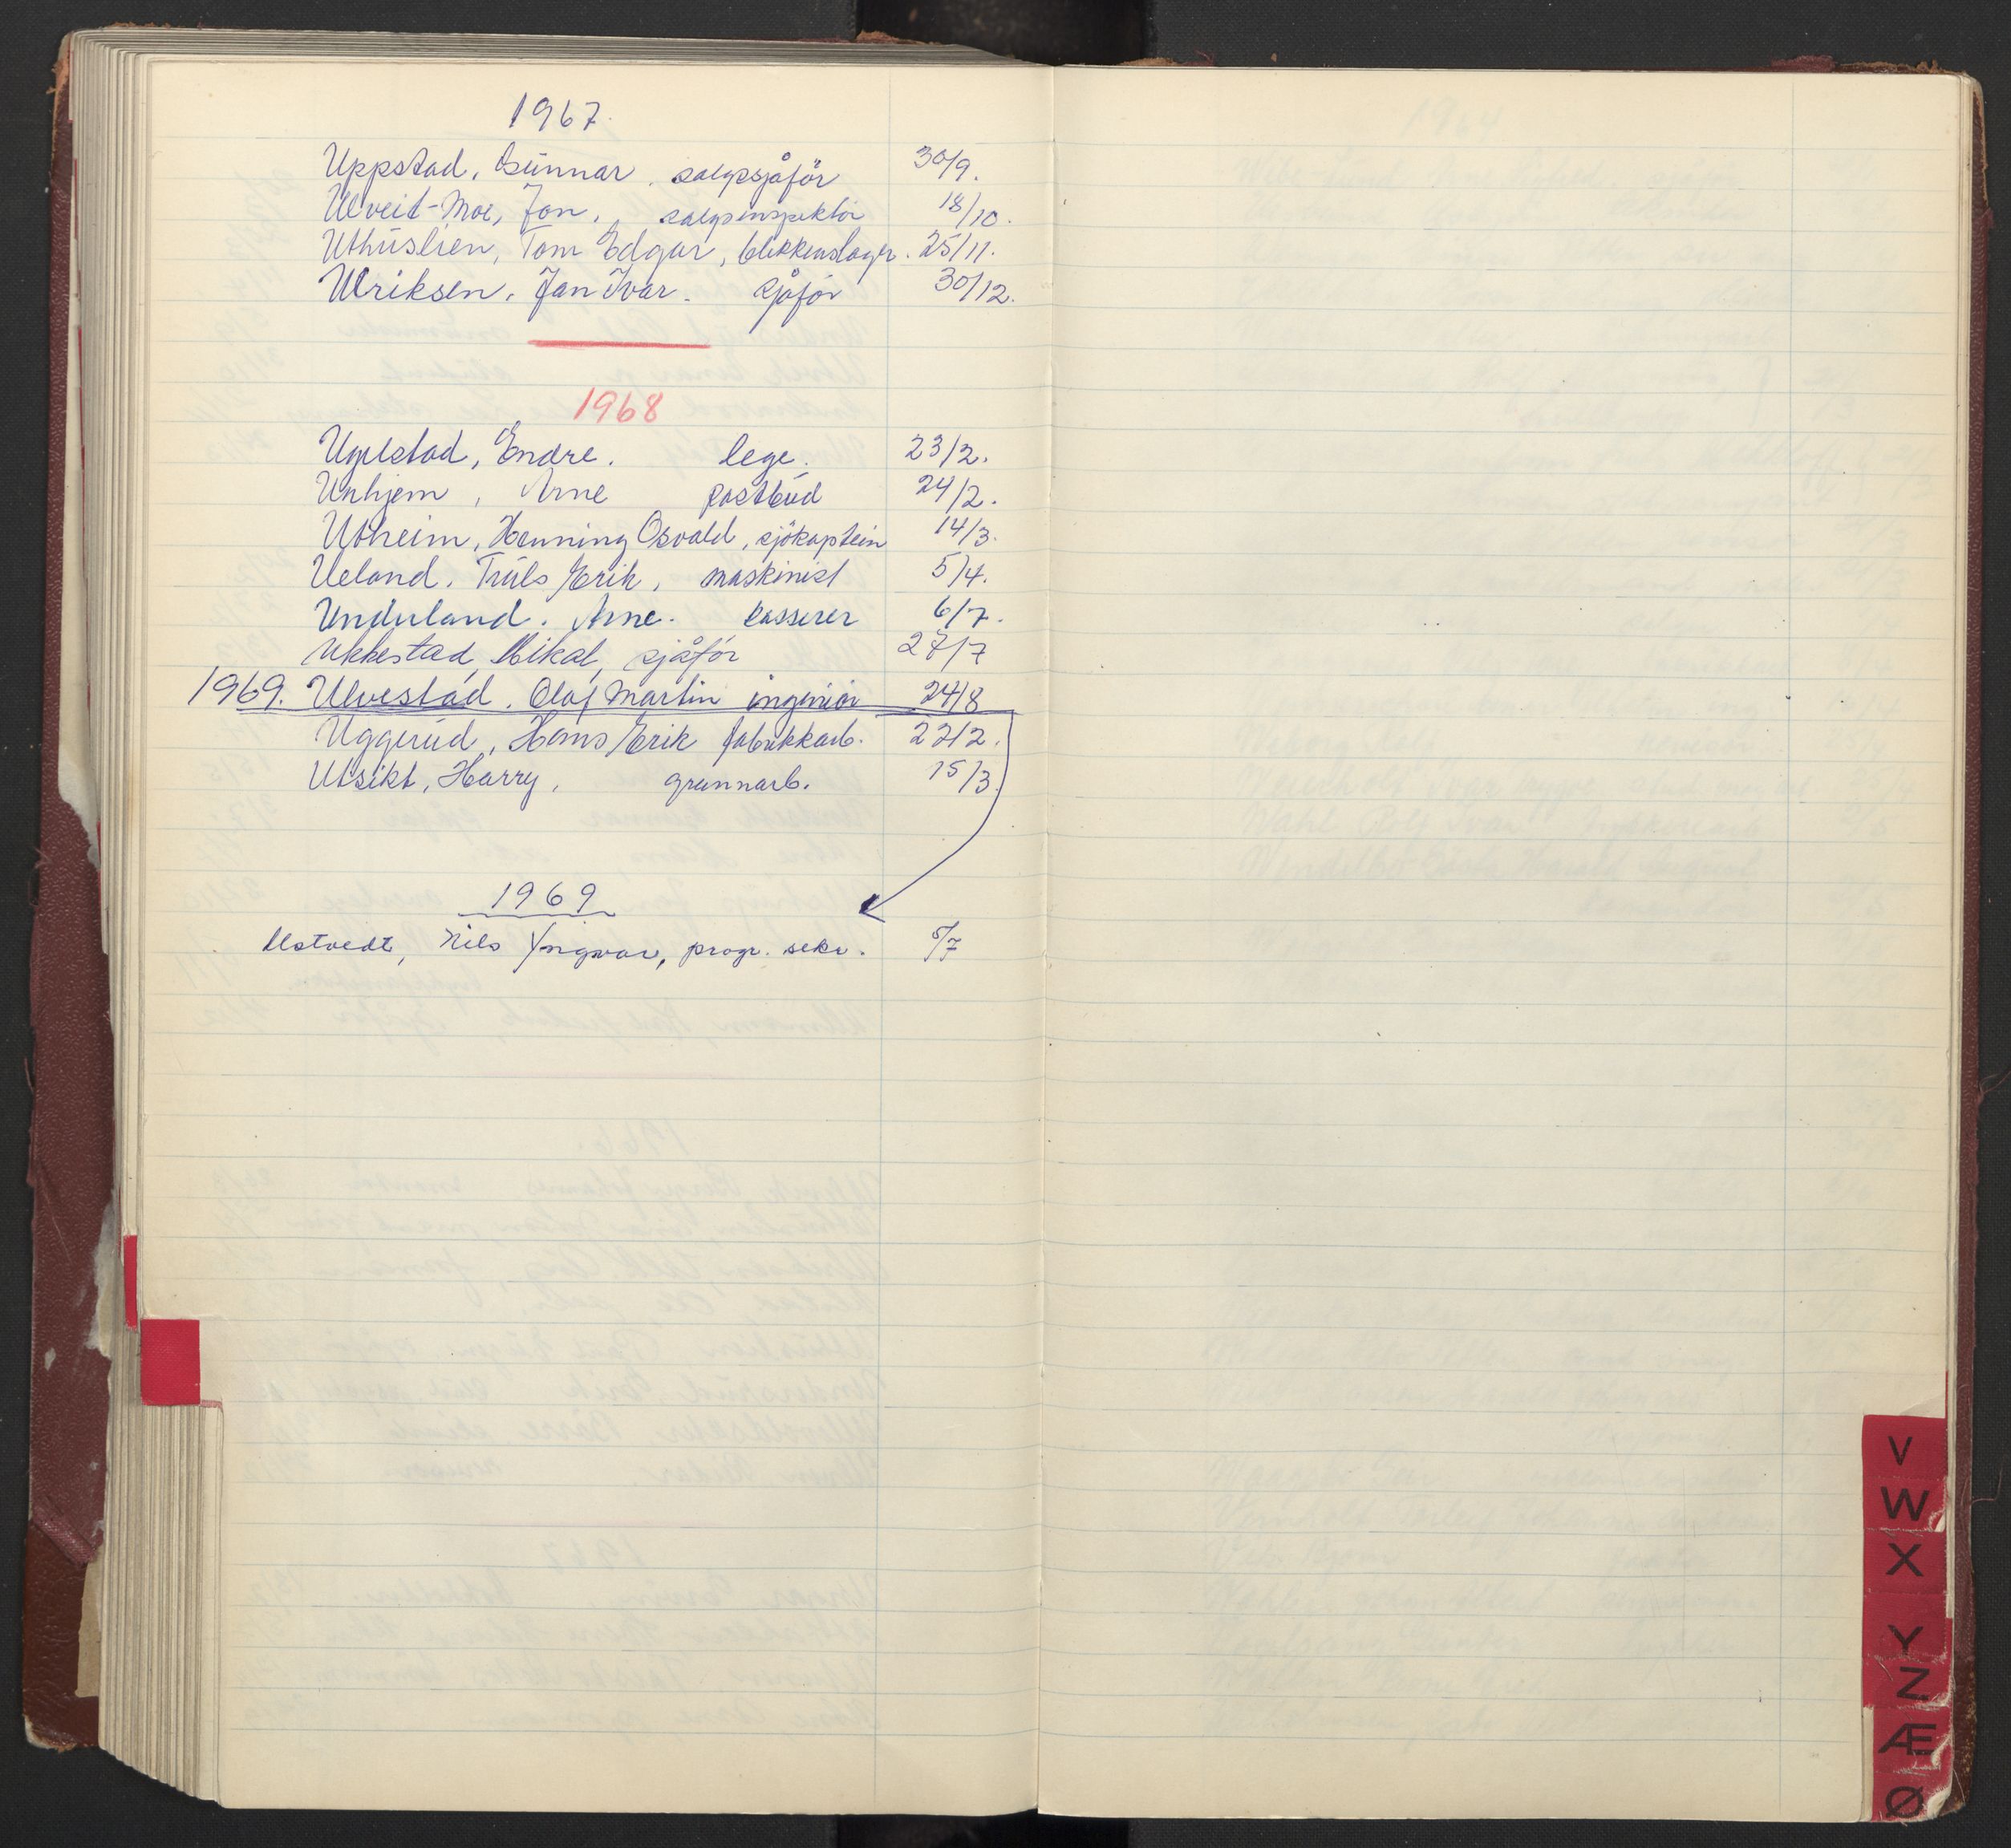 1967.
Uppstad, Gunnar. salgssjåfør 30/9.
Ulveid-Moe, Jon., salgsinspektør 18/10.
Uthuslien, Tom Edgar, blikkenslager. 25/11.
Ulriksen, Jan Ivar. sjåfør 30/12.
1968
Uglestad, Endre. lege. 23/2.
Unhjem, Arne postbud 24/2.
Utheim, Henning Osvald, sjökaptein 14/3.
Ueland. Truls Erik, maskinist 5/4.
Underland. Arne. kasserer 6/7.
Ukkestad, Mikal, sjåfør 27/7
1969. Ulvestad. Olaf Martin ingeniør 24/8
Uggerud, Hans Erik fabrikkarb. 22/2.
Utsikt, Harry, grunnarb. 15/3.
1969
Ustvedt, Nils Yngvar, progr. sekr. 5/7
V
W
X
Y
Z
Æ
Ø